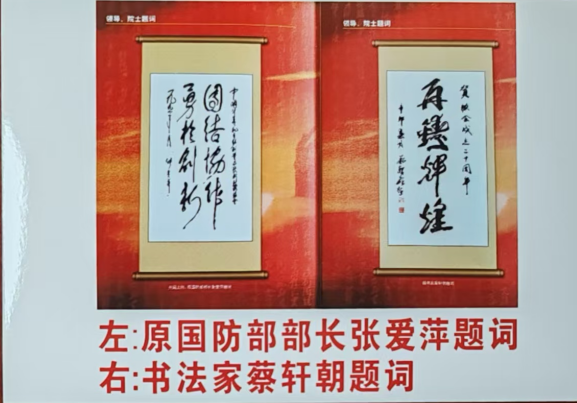 领导、院士题词
领导、院士题词
团结协作
勇于创新
贺协会成立二十周年
再铸辉煌
左:原国防部部长张爱萍题词
右:书法家蔡轩朝题词